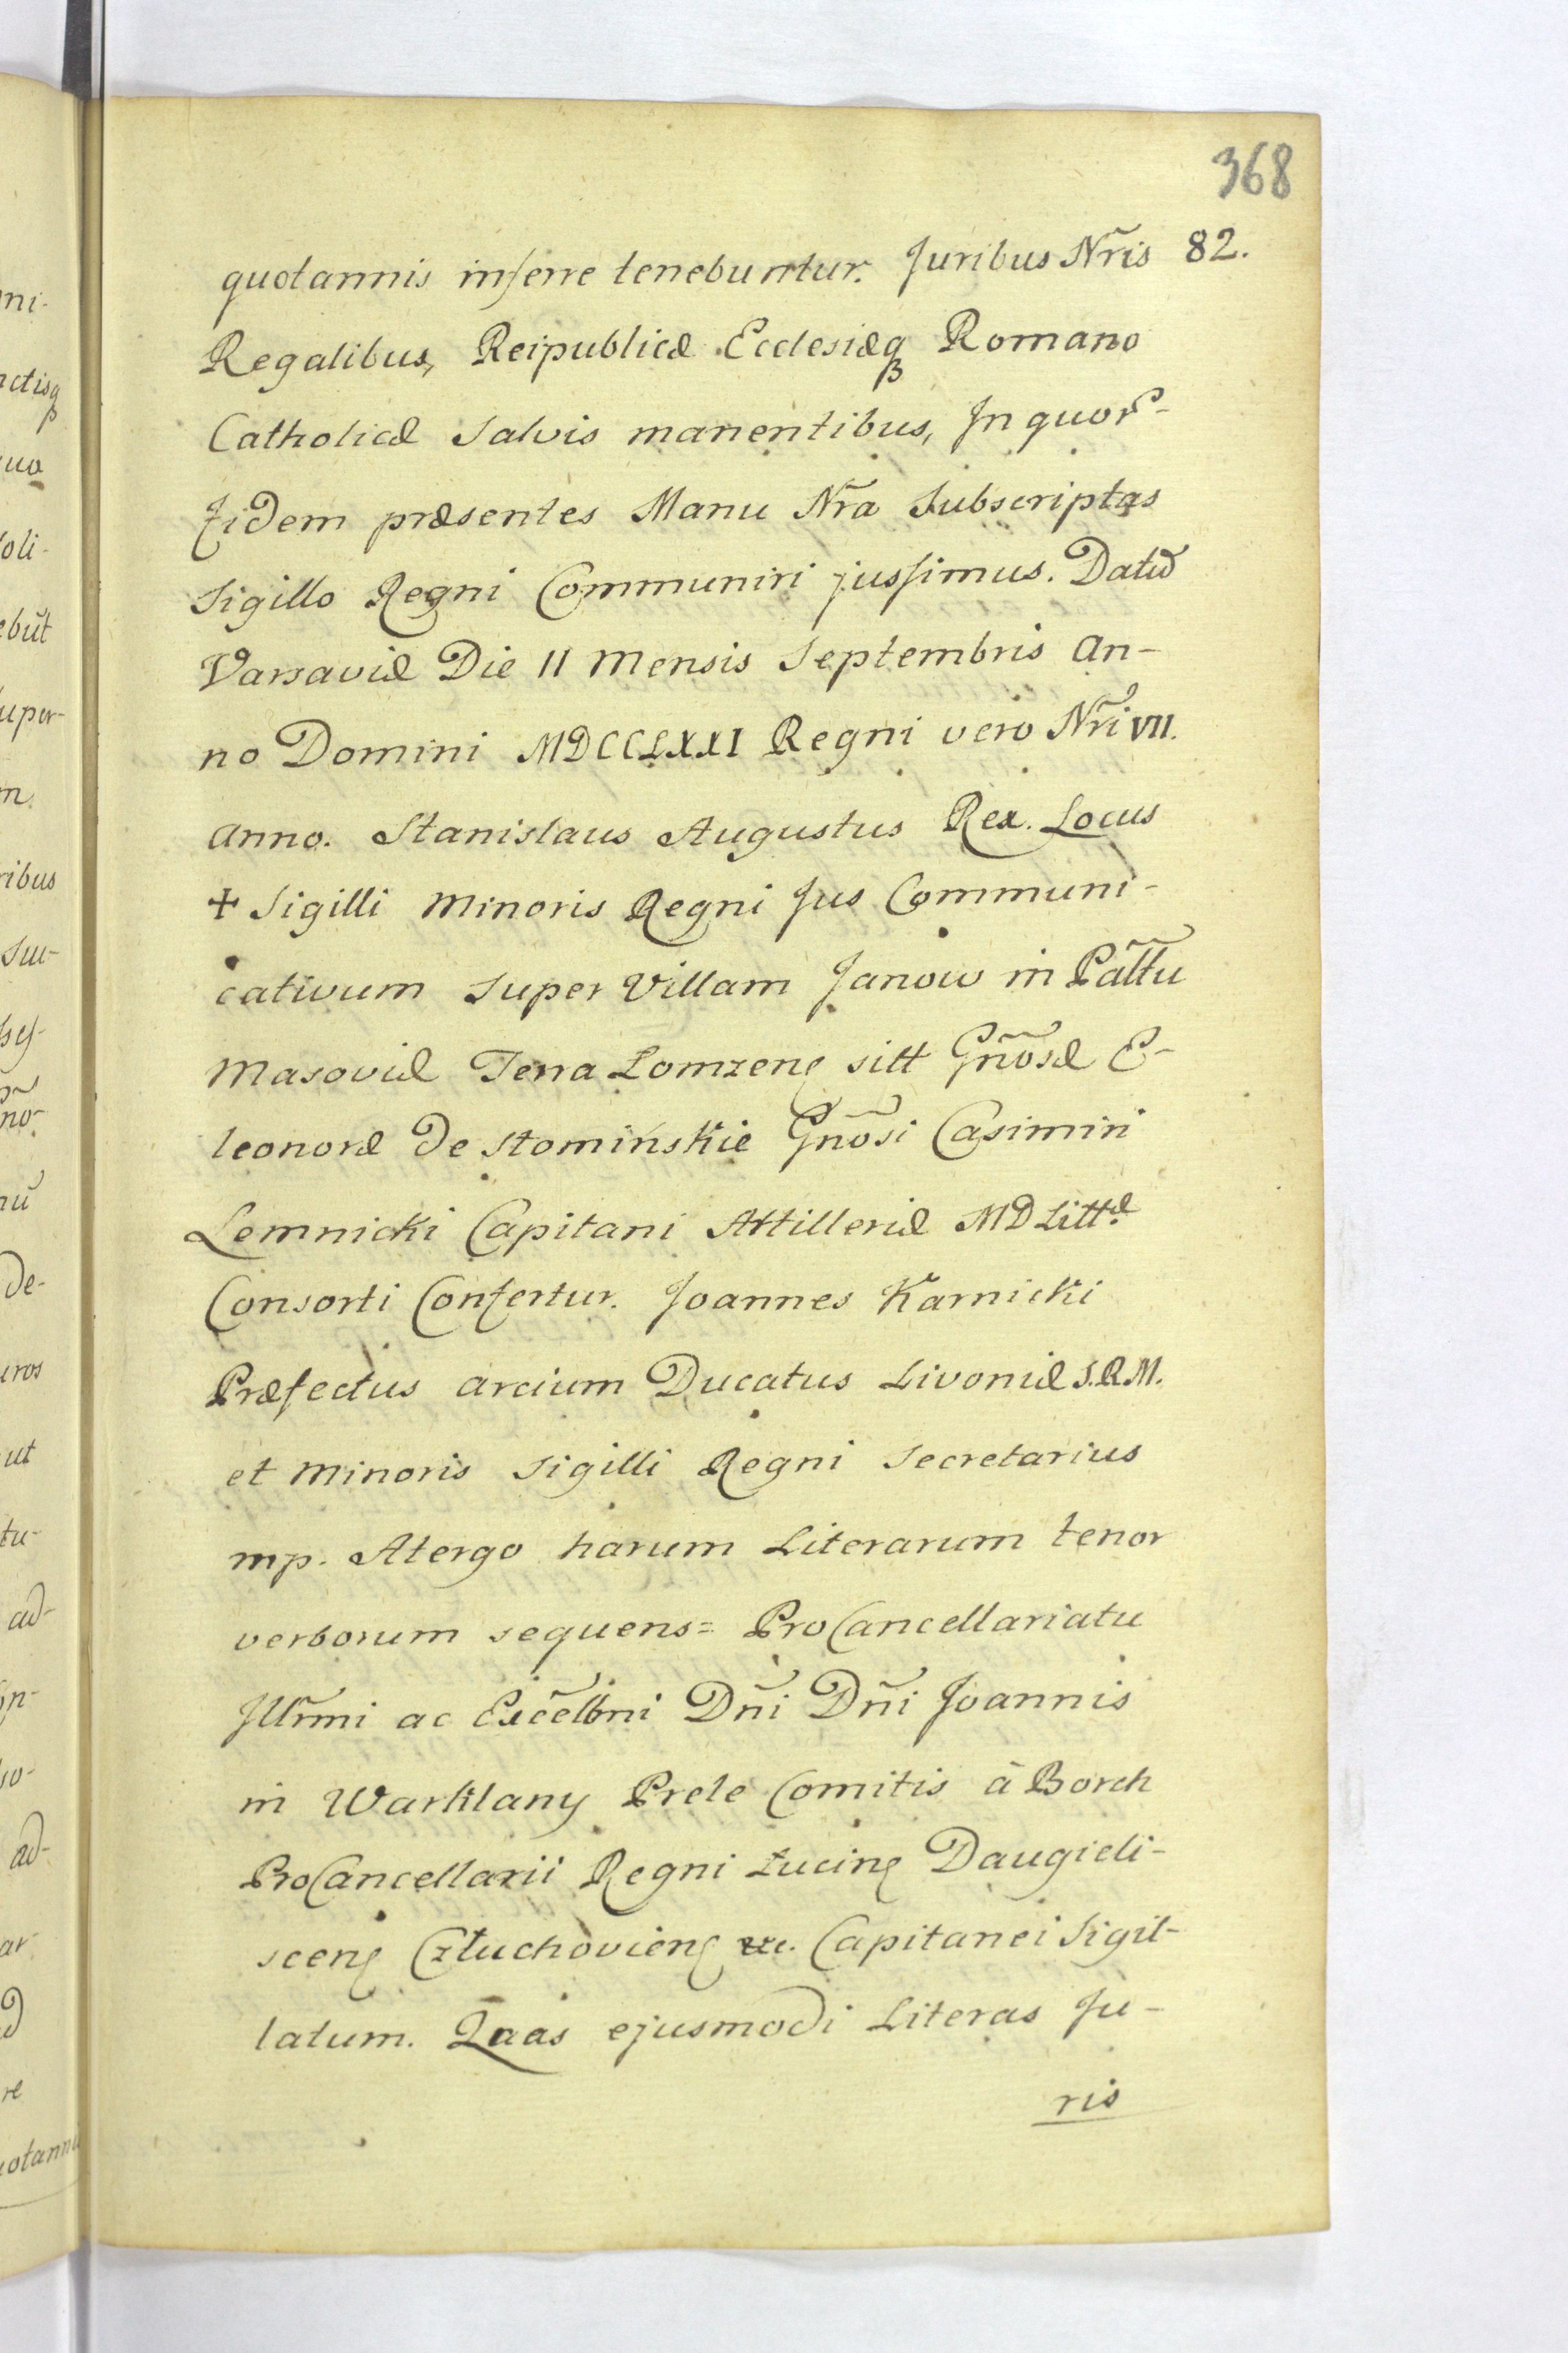 368
82.
quotannis inferre tenebuntur. Juribus Nr̃is
Regalibus, Reipublicæ Ecclesiæq Romano
Catholicæ Salvis manentibus, In quor
fidem præsentes Manu Nr̃a Subscriptas
Sigillo Regni Communiri jussimus. Datũ
Varsaviæ Die 11 Mensis Septembris An-
no Domini MDCCLXXI Regni vero Nr̃i VII.
Anno. Stanislaus Augustus Rex. Locus
+ Sigilli Minoris Regni Jus Communi-
cativum Super Villam Janow in Pãltu
Masoviæ Terra Lomzenę sitt Gñosæ E-
leonoræ De Słominskie Gñosi Casimiri
Lemnicki Capitani Attilleriæ MD Littæ
Consorti Confertur. Joannes Karnicki
Præfectus arcium Ducatus Livoniæ S.R.M.
et Minoris Sigilli Regni Secretarius
mp. Atergo harum Literarum tenor
verborum sequens= ProCancellariatu
Jllr̃mi ac Excel̃lmi Dñi Dñi Joannis
in Warklany Prele Comitis à Borch
ProCancellarii Regni Lucinę Daugieli-
scenę Człuchovienę etc. Capitanei Sigil-
latum. Quas ejusmodi Literas Ju-
ris